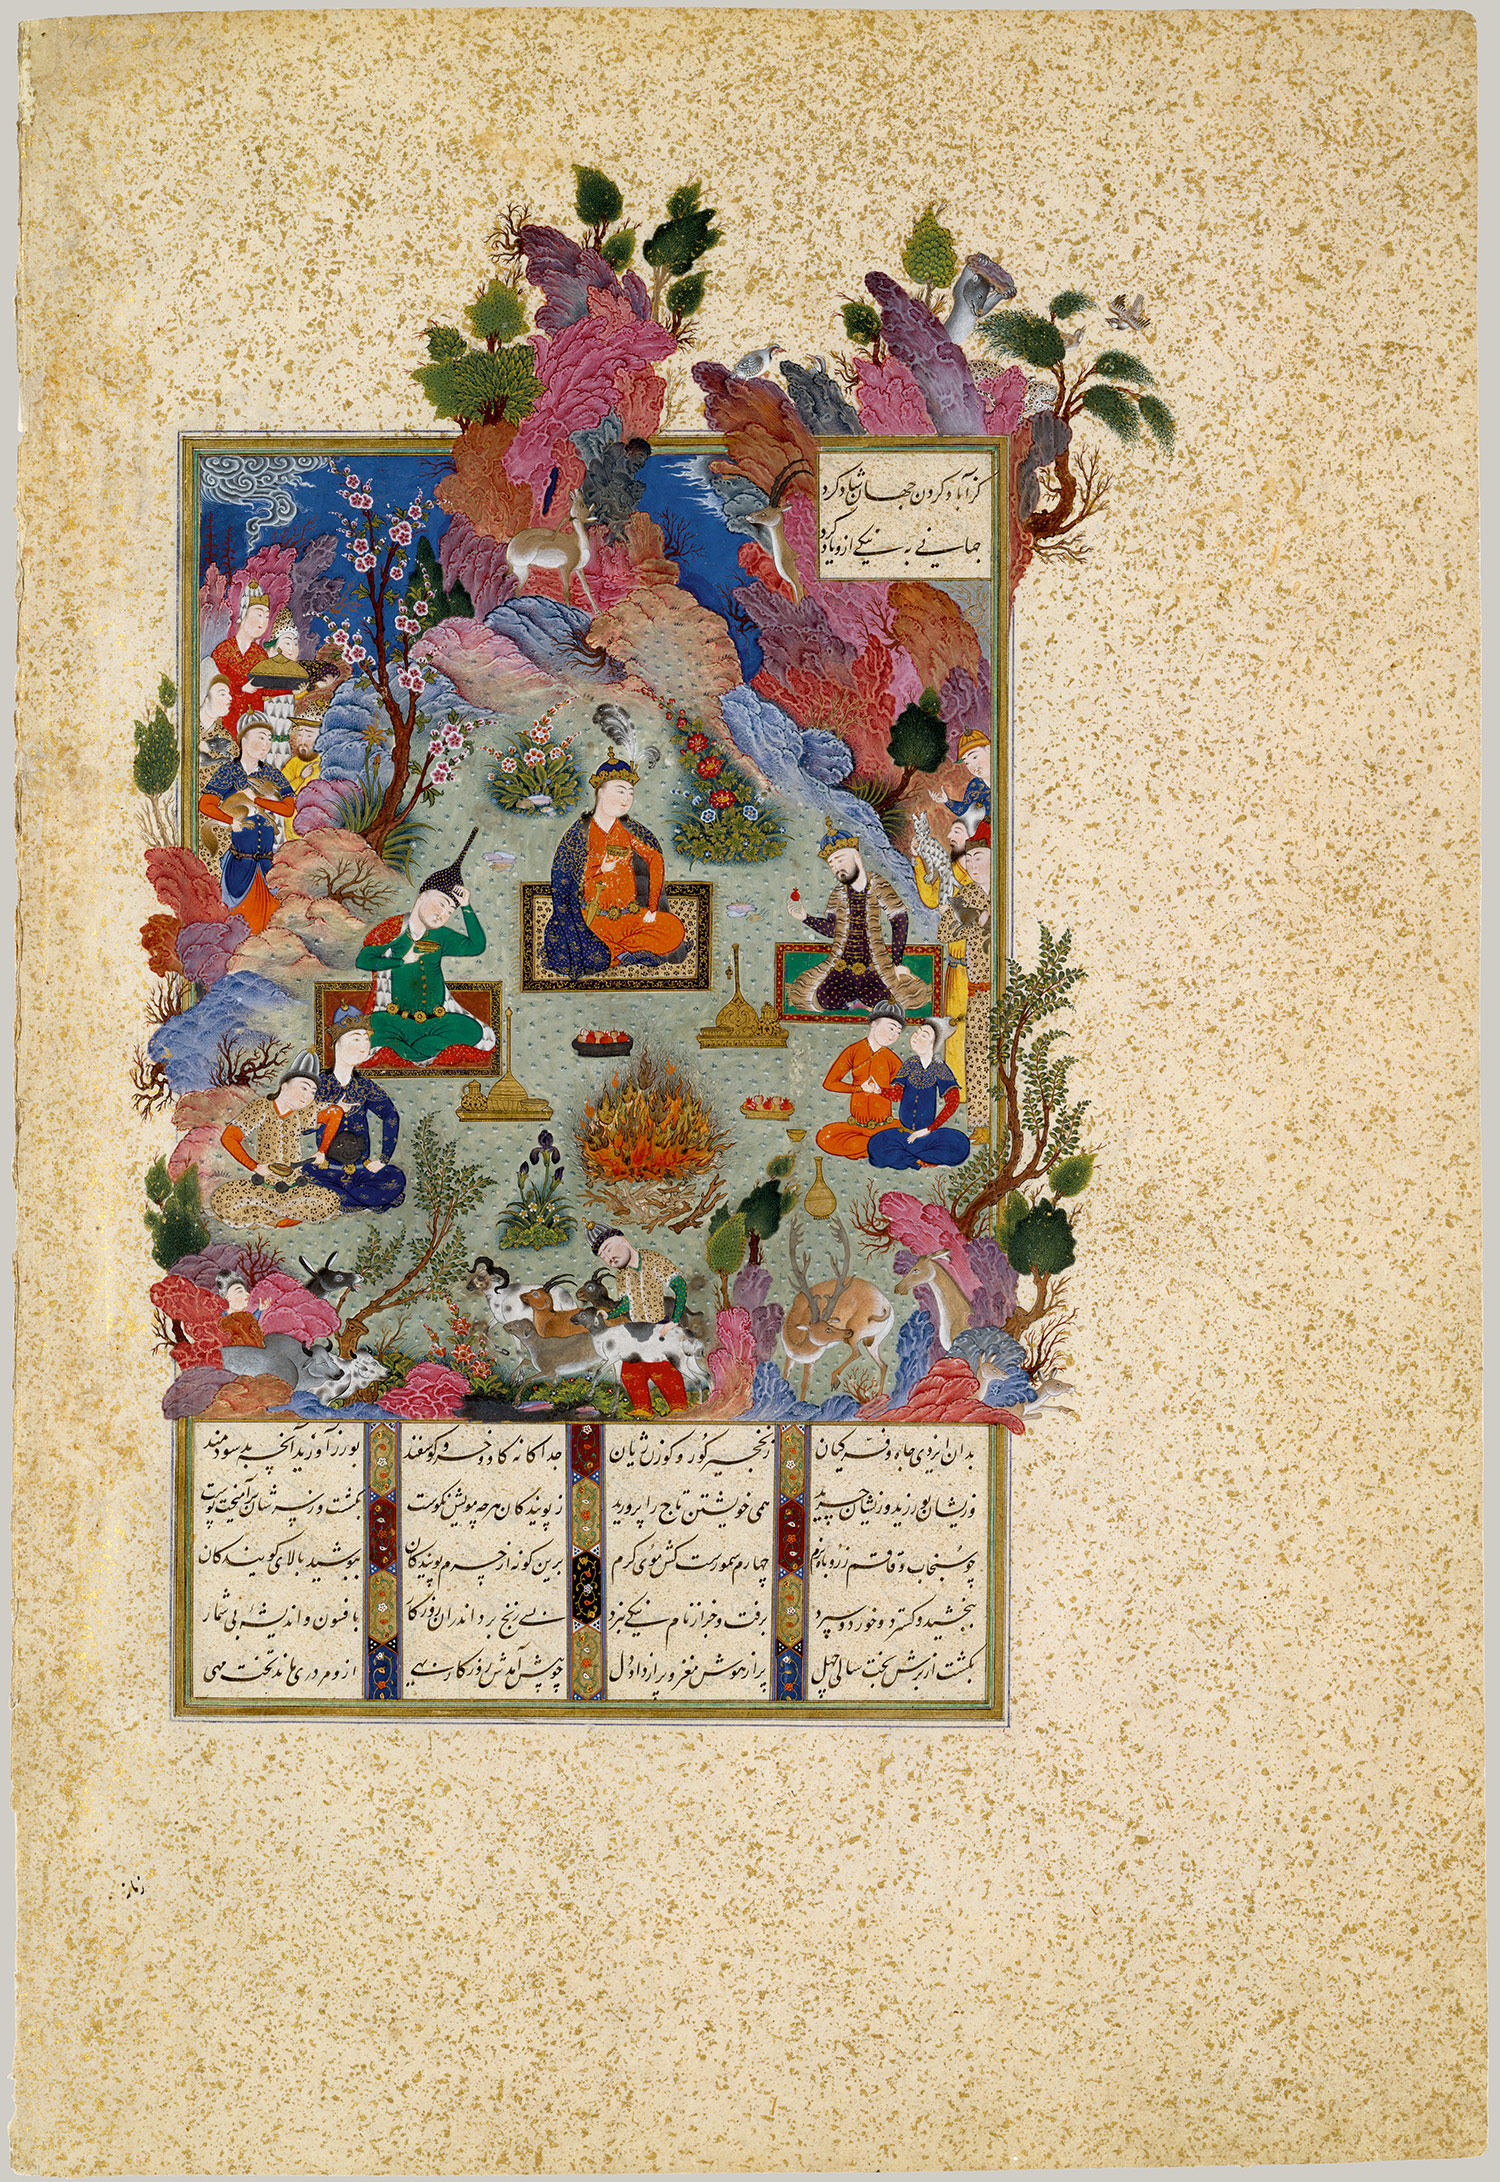 کز آباد کردن جهان شاد کرد
جهانی به نیکی ازو یاد کرد
بدان ایزدی جاه و فر کیان ز نخجیر کور و کوزن ژیان جدا کانه کاو و خر و کوسفند بورز آورید آنچه بد سودمند
وزیشان بورزید وزیشان چرید همی خویشتن تاج را پرورید ز پویندکان هر چه مویش نکوست بکشت و ز سرشان برآهیخت پوست
چو سنجاب و قاقم ز روباه نرم چهارم سمورست کش موی کرم برین کونه از چرم پویندکان بپوشید بالای کویندکان
ببخشید و کسترد و خورد و سپرد برفت و جز از نام نیکی نبرد بسی رنج برد اندران روزکار بافسون و اندیشهٔ بی شمار
بکشت از برش بخت سالی چهل پر از هوش مغز و پر از داد دل چو پیش آمدش روزکار بهی ازو مردری ماند تخت مهی